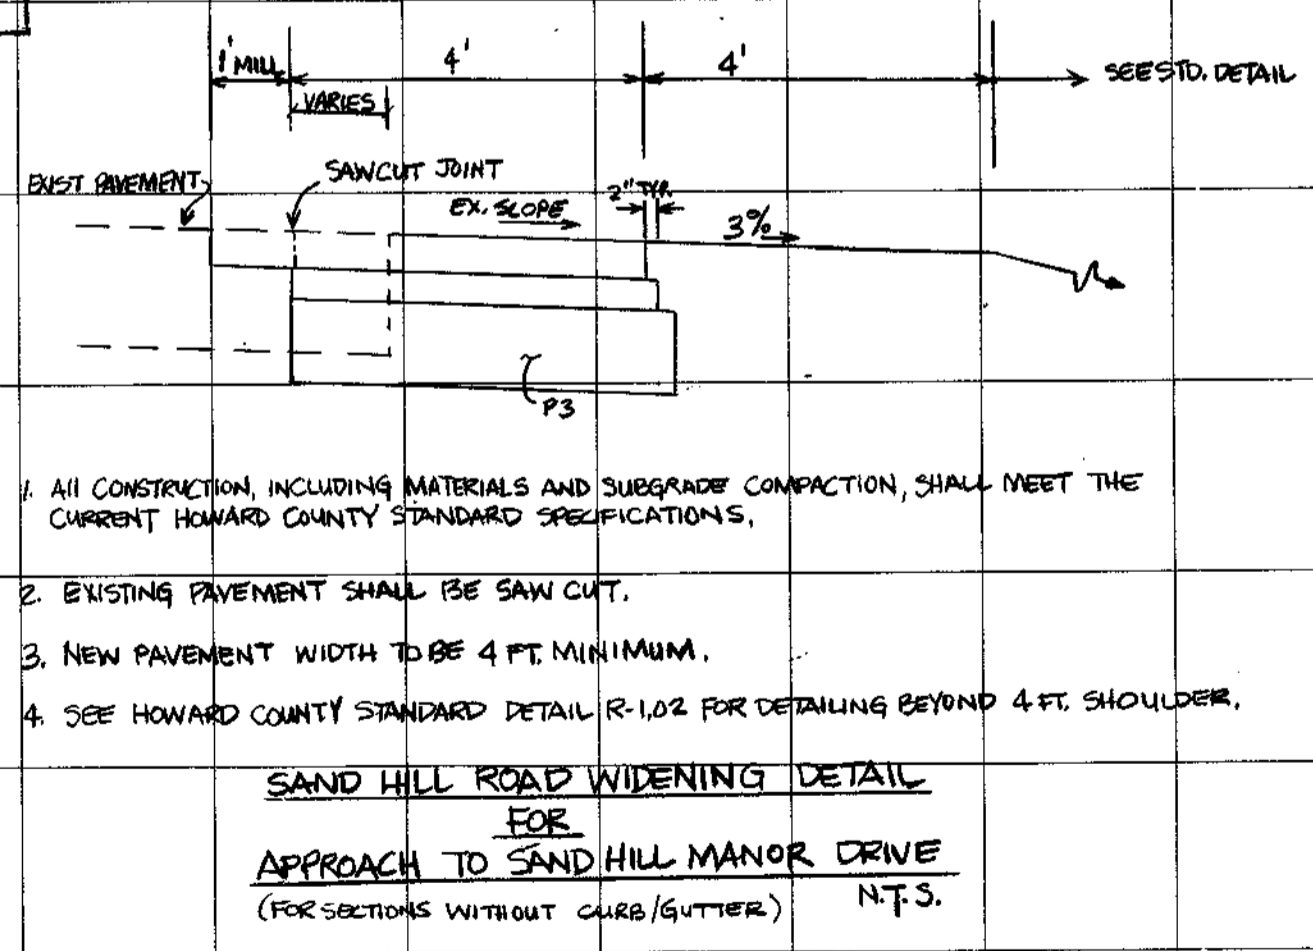 1' MILL
4'
4'
SEE STD. DETAIL
VARIES
EXIST PAVEMENT
SAWCUT JOINT
EX. SLOPE
2" TYP.
3%
P3
1. All CONSTRUCTION, INCLUDING MATERIALS AND SUBGRADE COMPACTION, SHALL MEET THE
CURRENT HOWARD COUNTY STANDARD SPECIFICATIONS.
2. EXISTING PAVEMENT SHALL BE SAW CUT.
3. NEW PAVEMENT WIDTH TO BE 4 FT. MINIMUM.
4. SEE HOWARD COUNTY STANDARD DETAIL R-1.02 FOR DETAILING BEYOND 4 FT. SHOULDER.
SAND HILL ROAD WIDENING DETAIL
FOR
APPROACH TO SAND HILL MANOR DRIVE
(FOR SECTIONS WITHOUT CURB/GUTTER) N.T.S.